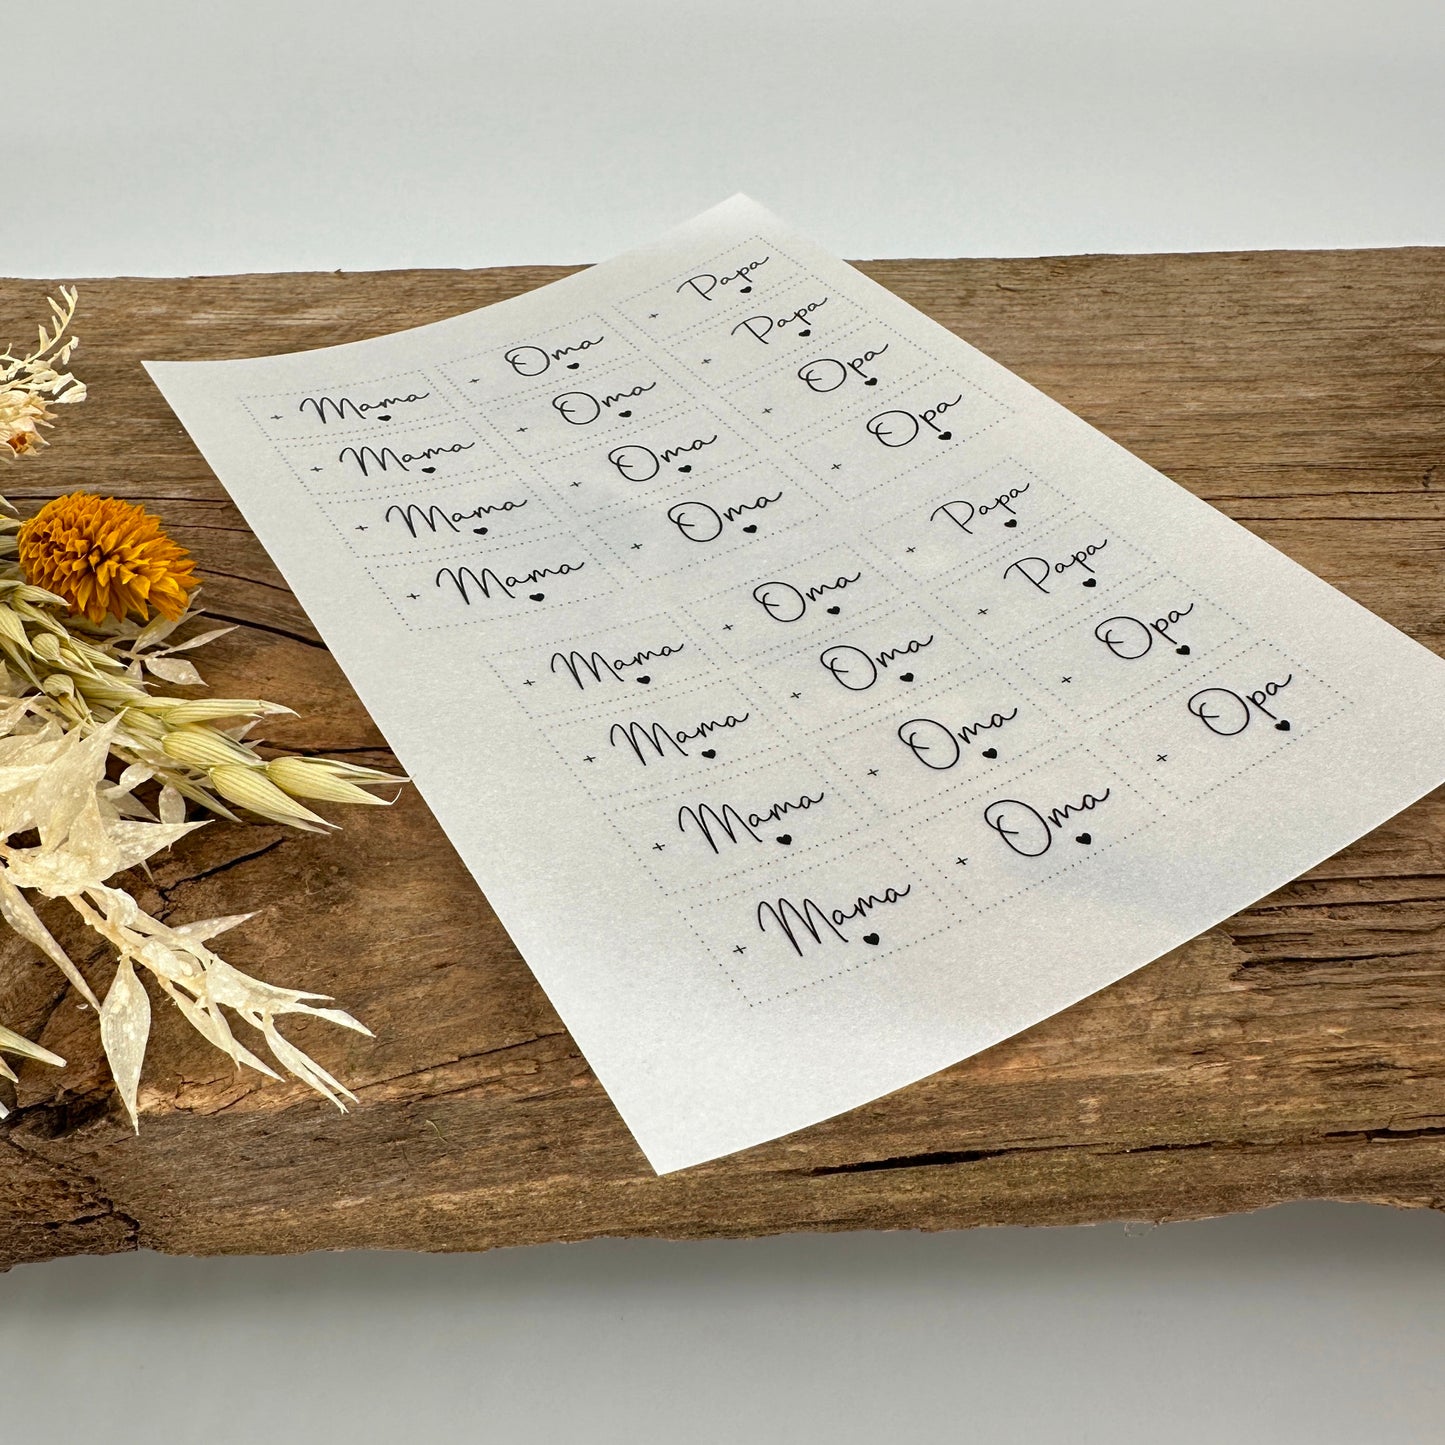 + Mama + Oma + Papa
+ Mama + Oma + Papa
+ Mama + Oma + Opa
+ Mama + Oma + Opa
+ Mama + Oma + Papa
+ Mama + Oma + Papa
+ Mama + Oma + Opa
+ Mama + Oma + Opa